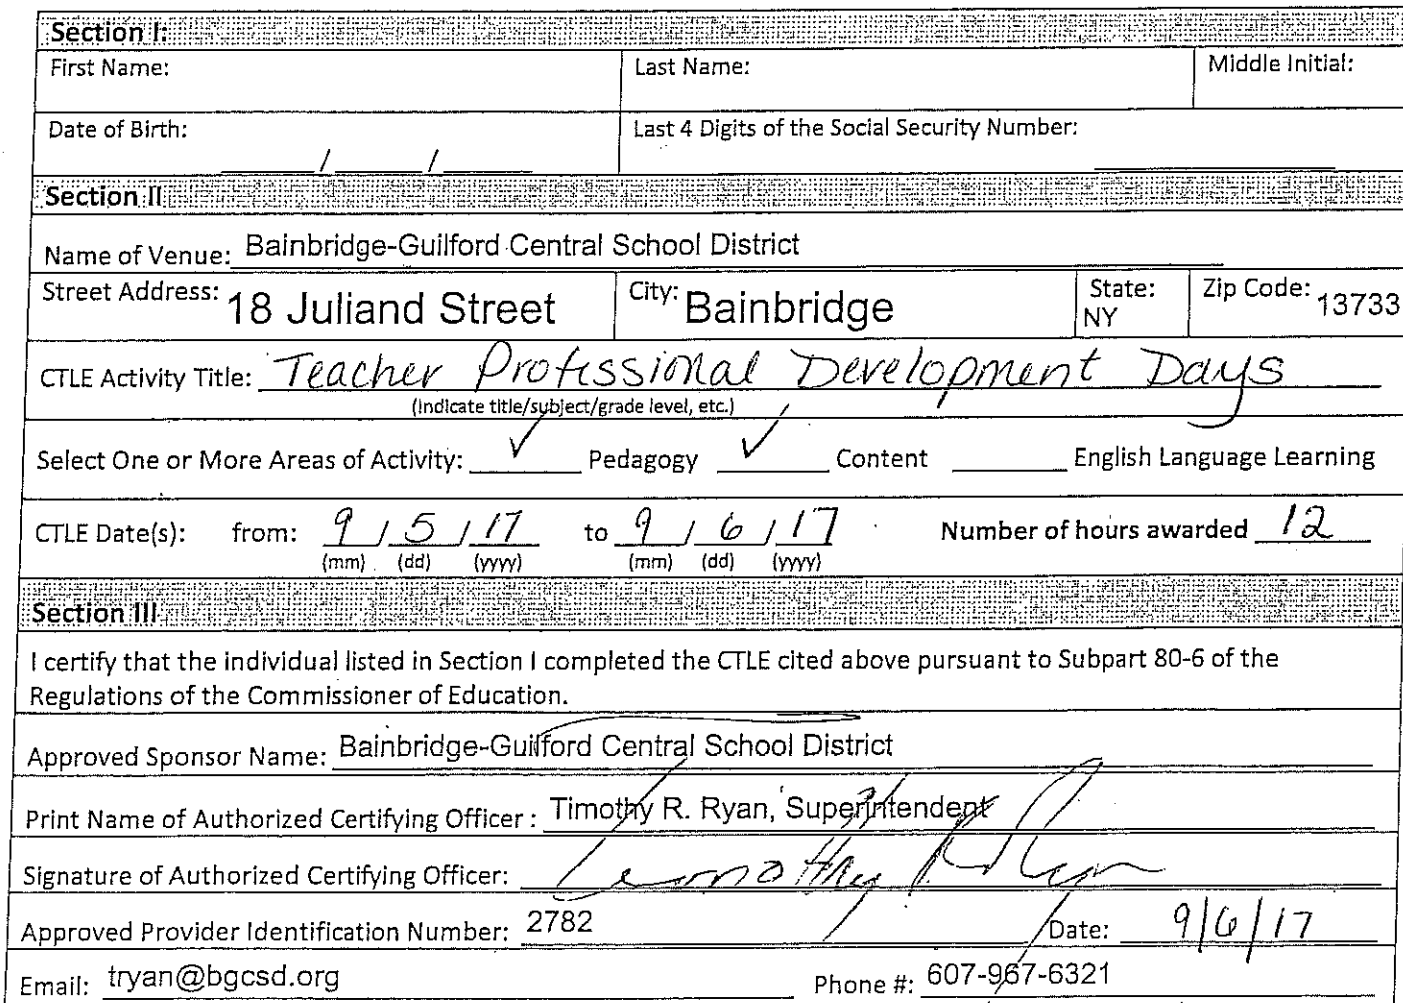 Section I:
First Name: Last Name: Middle Initial:
Date of Birth: Last 4 Digits of the Social Security Number:
/ /
Section II
Name of Venue: Bainbridge-Guilford Central School District
Street Address: 18 Juliand Street City: Bainbridge State: NY Zip Code: 13733
CTLE Activity Title: Teacher Professional Development Days
(Indicate title/subject/grade level, etc.)
Select One or More Areas of Activity: ✓ Pedagogy ✓ Content English Language Learning
CTLE Date(s): from: 9 / 5 / 17 to 9 / 6 / 17 Number of hours awarded 12
(mm) (dd) (yyyy) (mm) (dd) (yyyy)
Section III
I certify that the individual listed in Section I completed the CTLE cited above pursuant to Subpart 80-6 of the
Regulations of the Commissioner of Education.
Approved Sponsor Name: Bainbridge-Guilford Central School District
Print Name of Authorized Certifying Officer : Timothy R. Ryan, Superintendent
Signature of Authorized Certifying Officer: Timothy R Ryan
Approved Provider Identification Number: 2782 Date: 9/6/17
Email: tryan@bgcsd.org Phone #: 607-967-6321